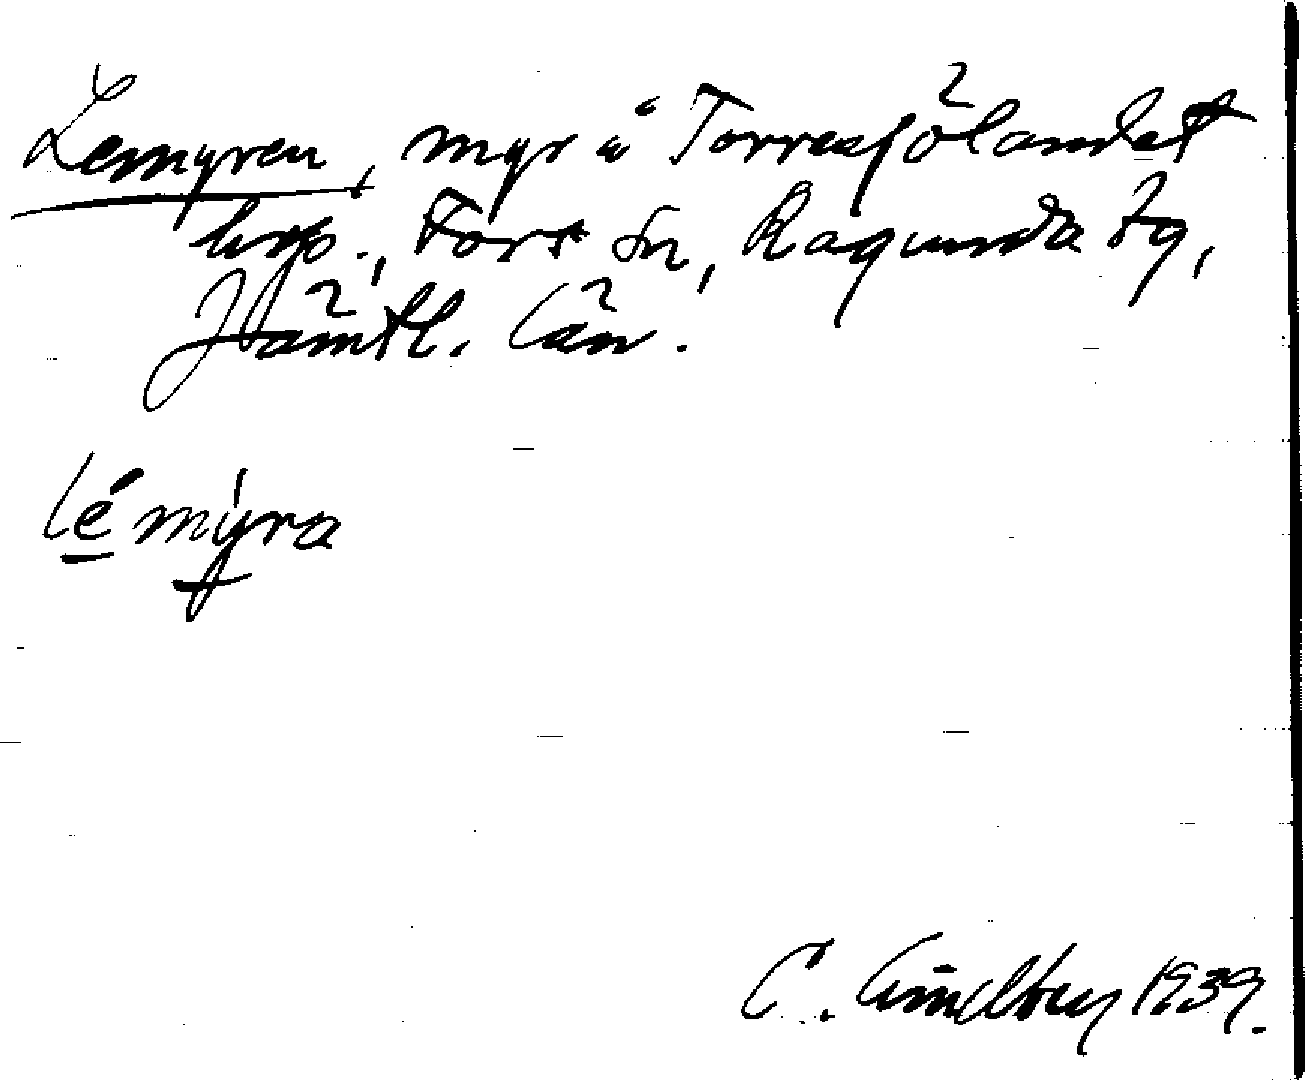 Lemyren, myr å Torresjölandet
brp., Fors sn, Ragunda tg,
Jämtl. län.
lémýra
C. Lindberg 1939.